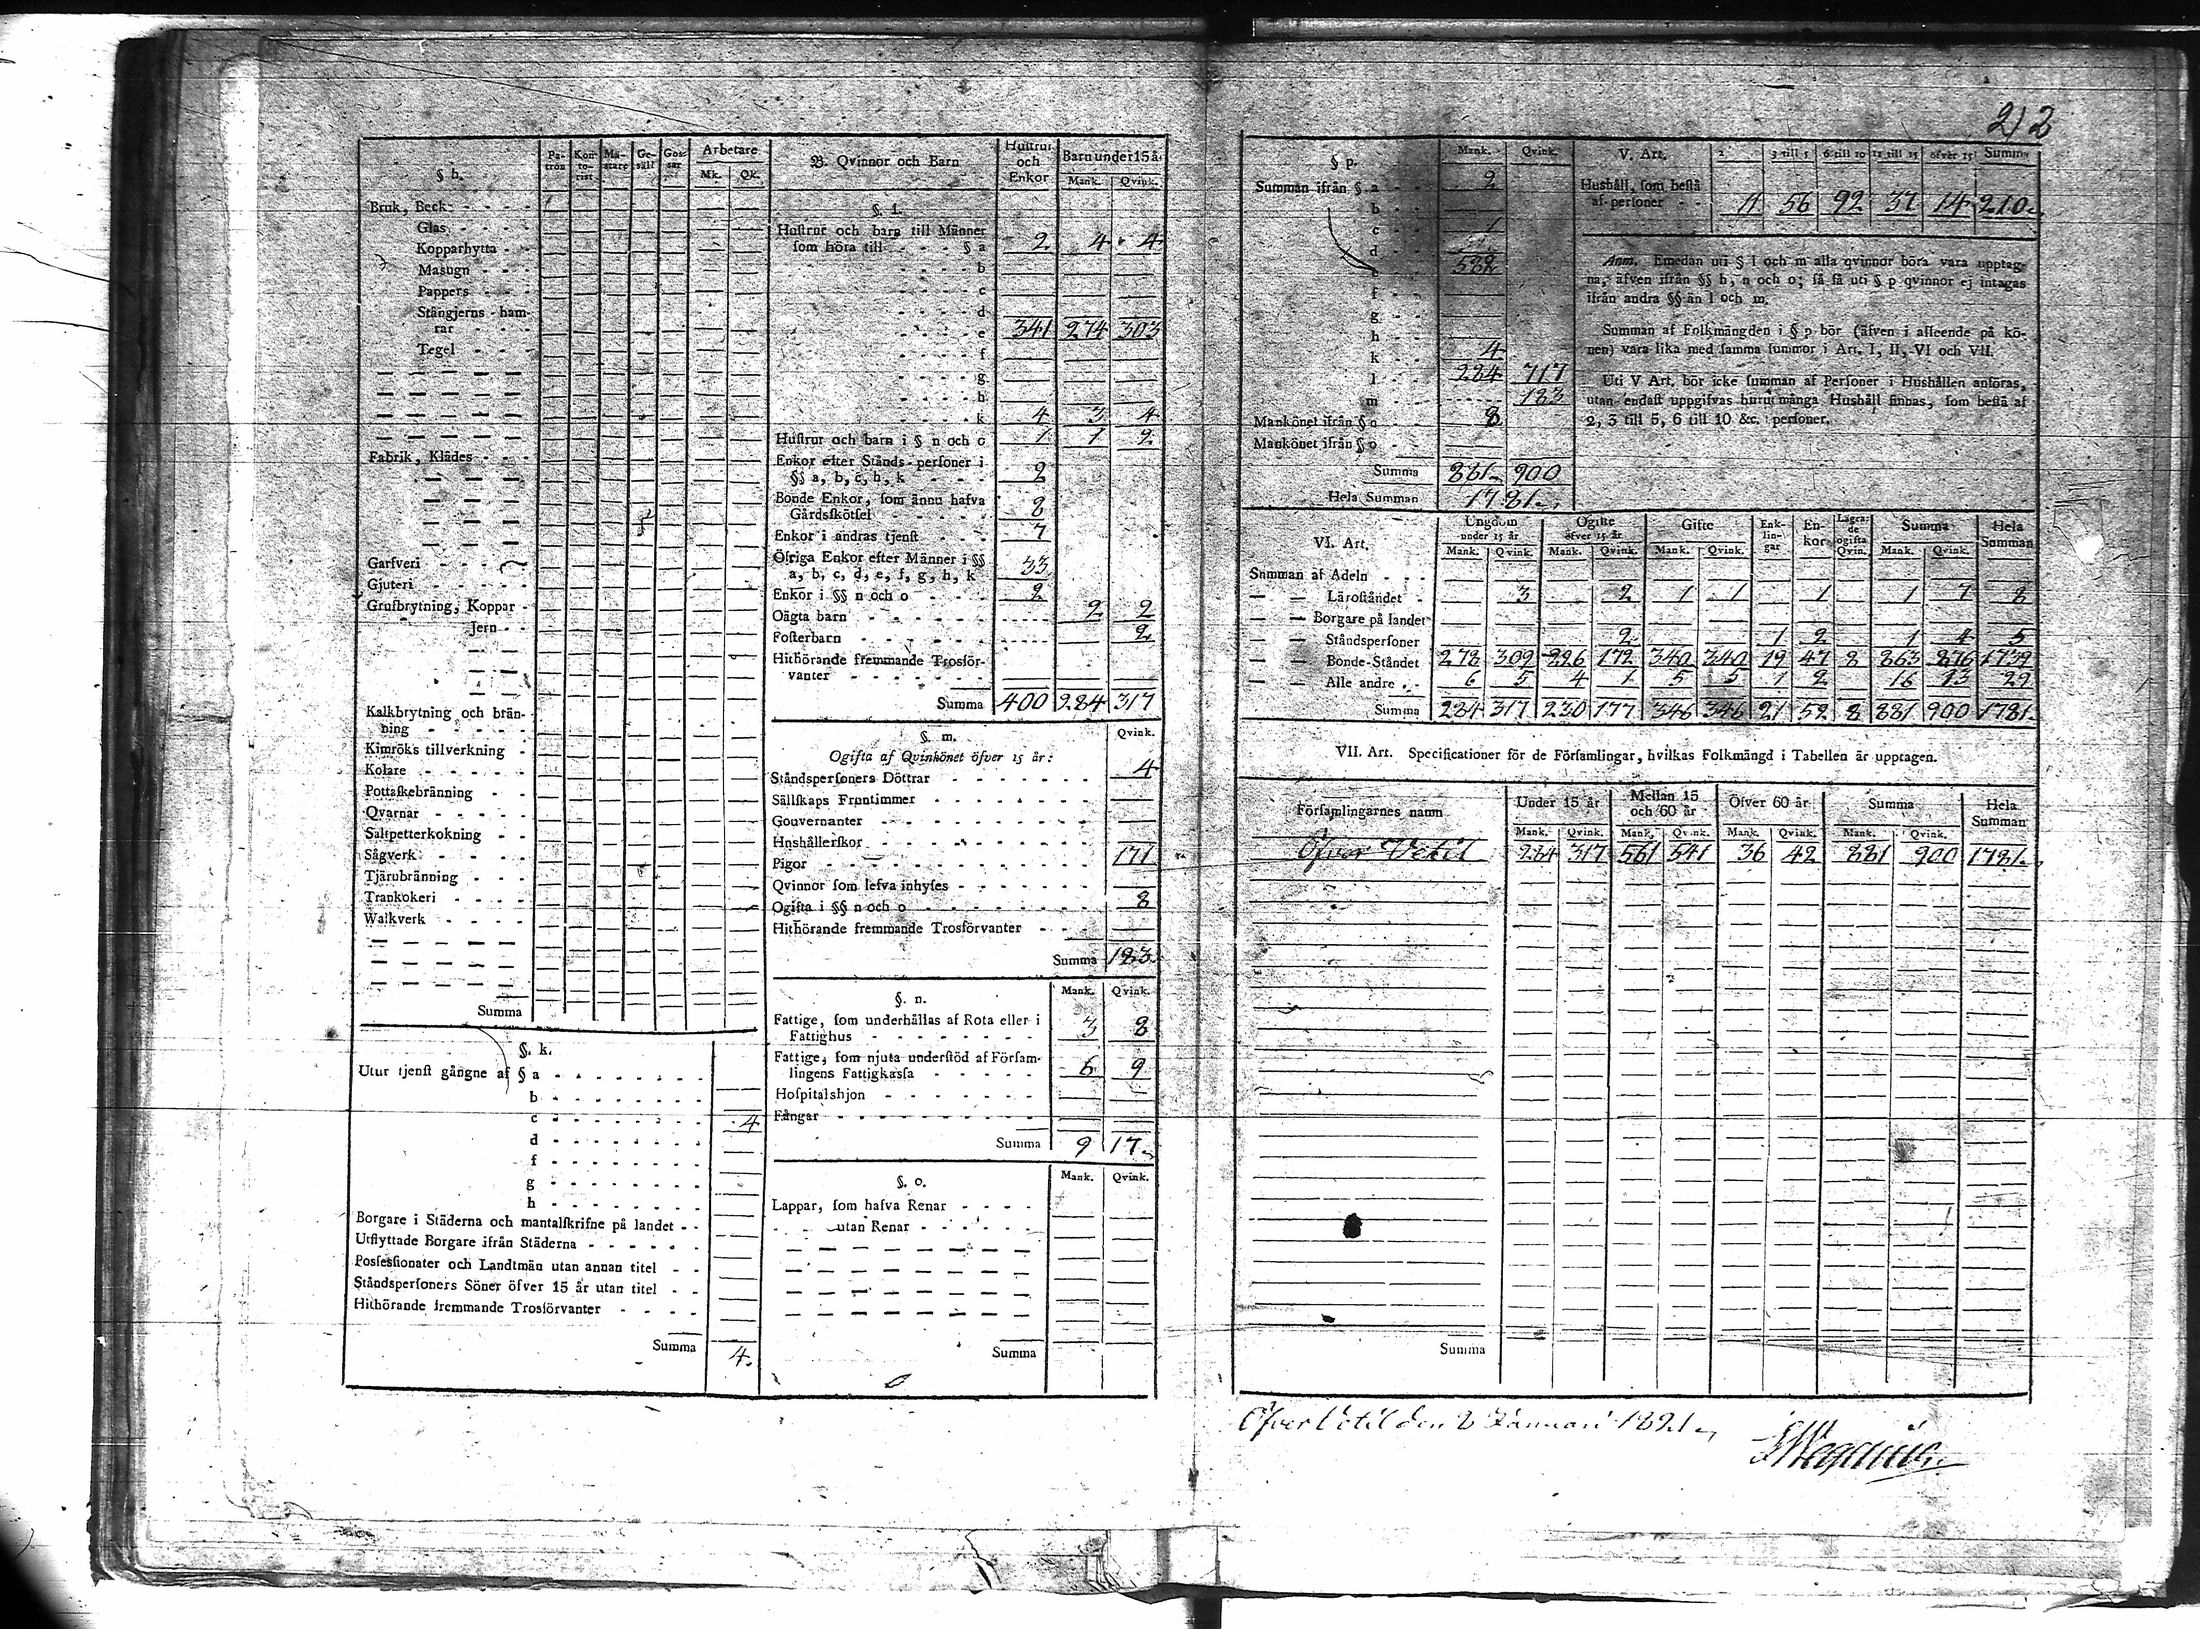 212
§ h.
Pa-
tron
Kon-
to-
rist
Mä-
stare
Ge-
säll
Gos-
sar
Arbetare
Mk. Qk.
Bruk, Beck
Glas
Kopparhytta
Masugn
Pappers
Stångjerns-ham-
rar
Tegel
Fabrik, Klädes
Garfveri
Gjuteri
Grufbrytning, Koppar
Jern
Kalkbrytning och brän-
ning
Kimröks tillverkning
Kolare
Pottaskebränning
Qvarnar
Saltpetterkokning
Sågverk
Tjärubränning
Trankokeri
Walkverk
Summa
§. k.
Utur tjenſt gångne af § a
b
c 4
d
f
g
h
Borgare i Städerna och mantalſkrifne på landet
Utflyttade Borgare ifrån Städerna
Poſſeſſionater och Landtmän utan annan titel
Ståndsperſoners Söner öfver 15 år utan titel
Hithörande fremmande Trosförvanter
Summa 4.
B. Qvinnor och Barn
Huſtrur
och
Enkor
Barn under 15 å.
Mank. Qvink.
§. l.
Huſtrur och barn till Männer
ſom höra till § a 2 4 4
b
c
d
e 341 274 303
f
g
h
k 4 3 4
Huſtrur och barn i § n och o 1 1 2
Enkor efter Stånds-perſoner i
§§ a, b, c, h, k 2
Bonde Enkor, ſom ännu hafva
Gårdsſkötſel 8
Enkor i andras tjenſt 7
Öfriga Enkor efter Männer i §§
a, b, c, d, e, f, g, h, k 33
Enkor i §§ n och o 2
Oägta barn 2 2
Foſterbarn 2
Hithörande fremmande Trosför-
vanter
Summa 400 284 317
§. m.
Qvink.
Ogifta af Qvinkönet öfver 15 år:
Ståndsperſoners Döttrar 4
Sällſkaps Fruntimmer
Gouvernanter
Hushållerſkor
Pigor 171
Qvinnor ſom leſva inhyſes
Ogifta i §§ n och o 8
Hithörande fremmande Trosförvanter
Summa 183
§. n.
Mank. Qvink.
Fattige, ſom underhållas af Rota eller i
Fattighus 3 8
Fattige, ſom njuta underſtöd af Förſam-
lingens Fattigkaſſa 6 9
Hoſpitalshjon
Fångar
Summa 9 17
§. o.
Mank. Qvink.
Lappar, ſom hafva Renar
utan Renar
Summa
§ p.
Mank. Qvink.
Summan ifrån § a 2
b
c 1
d
e 582
f
g
h
k 4
l 284 717
m 183
Mankönet ifrån § n 8
Mankönet ifrån § o
Summa 881 900
Hela Summan 1781
V. Art.
2 3 till 5 6 till 10 11 till 15 öfver 15 Summa
Hushåll, ſom beſtå
af perſoner 11 56 92 37 14 210
Anm. Emedan uti § l och m alla qvinnor böra vara upptag-
na, äfven ifrån §§ h, n och o; ſå få uti § p qvinnor ej intagas
ifrån andra §§ än l och m.
Summan af Folkmängden i § p bör (äfven i afſeende på kö-
nen) vara lika med ſamma ſummor i Art. I, II, VI och VII.
Uti V Art. bör icke ſumman af Perſoner i Hushållen anföras,
utan endaſt uppgifvas huru många Hushåll finnas, ſom beſtå af
2, 3 till 5, 6 till 10 &c. perſoner.
VI. Art.
Ungdom
under 15 år
Ogifte
öfver 15 år
Gifte
Enk-
lin-
gar
En-
kor
Lägra-
de
ogifta
Qvin.
Summa
Hela
Summan
Mank. Qvink. Mank. Qvink. Mank. Qvink. Mank. Qvink.
Summan af Adeln
Läroſtåndet 3 2 1 1 1 1 7 8
Borgare på landet
Ståndsperſoner 2 1 2 1 4 5
Bonde-Ståndet 278 309 226 172 340 340 19 47 8 863 876 1739
Alle andre 6 5 4 1 5 5 1 2 16 13 29
Summa 284 317 230 177 346 346 21 52 8 881 900 1781
VII. Art. Specificationer för de Förſamlingar, hvilkas Folkmängd i Tabellen är upptagen.
Förſamlingarnes namn
Under 15 år
Mellan 15
och 60 år
Öfver 60 år
Summa
Hela
Summan
Mank. Qvink. Mank. Qvink. Mank. Qvink. Mank. Qvink.
Öfver Vetil 284 317 561 541 36 42 881 900 1781
Summa
Öfver Vetil den 8 Januari 1821